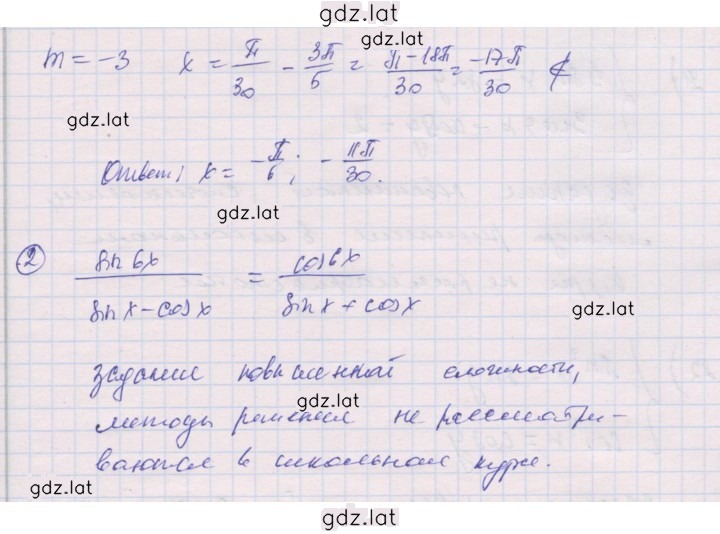 gdz.lat
gdz.lat
m = -3 x = π/30 - 3π/5 = π-18π/30 = -17π/30 ∉
gdz.lat
Ответ: x = -π/6; -11π/30.
gdz.lat
② sin6x/sinx-cosx = cos6x/sinx+cosx
gdz.lat
задание повышенной сложности,
gdz.lat
методы решения не рассматри-
ваются в школьном курсе.
gdz.lat
gdz.lat
gdz.lat